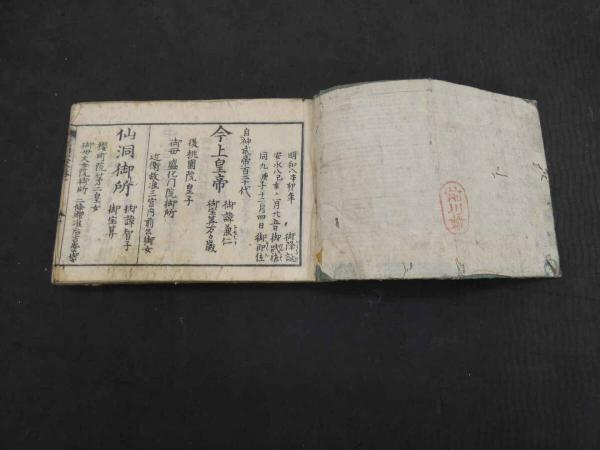 明和八辛卯年 御降誕
安永八己亥十一月廿五日 御践祚
同九庚子十二月四日 御即位
自神武帝百二十代
今上皇帝 御諱兼仁
御宝算万々歳
後桃園院皇子
御母 盛化門院御所
近衛故准三宮内前公御女
仙洞御所 御諱智子
御宝算
桜町院第二皇女